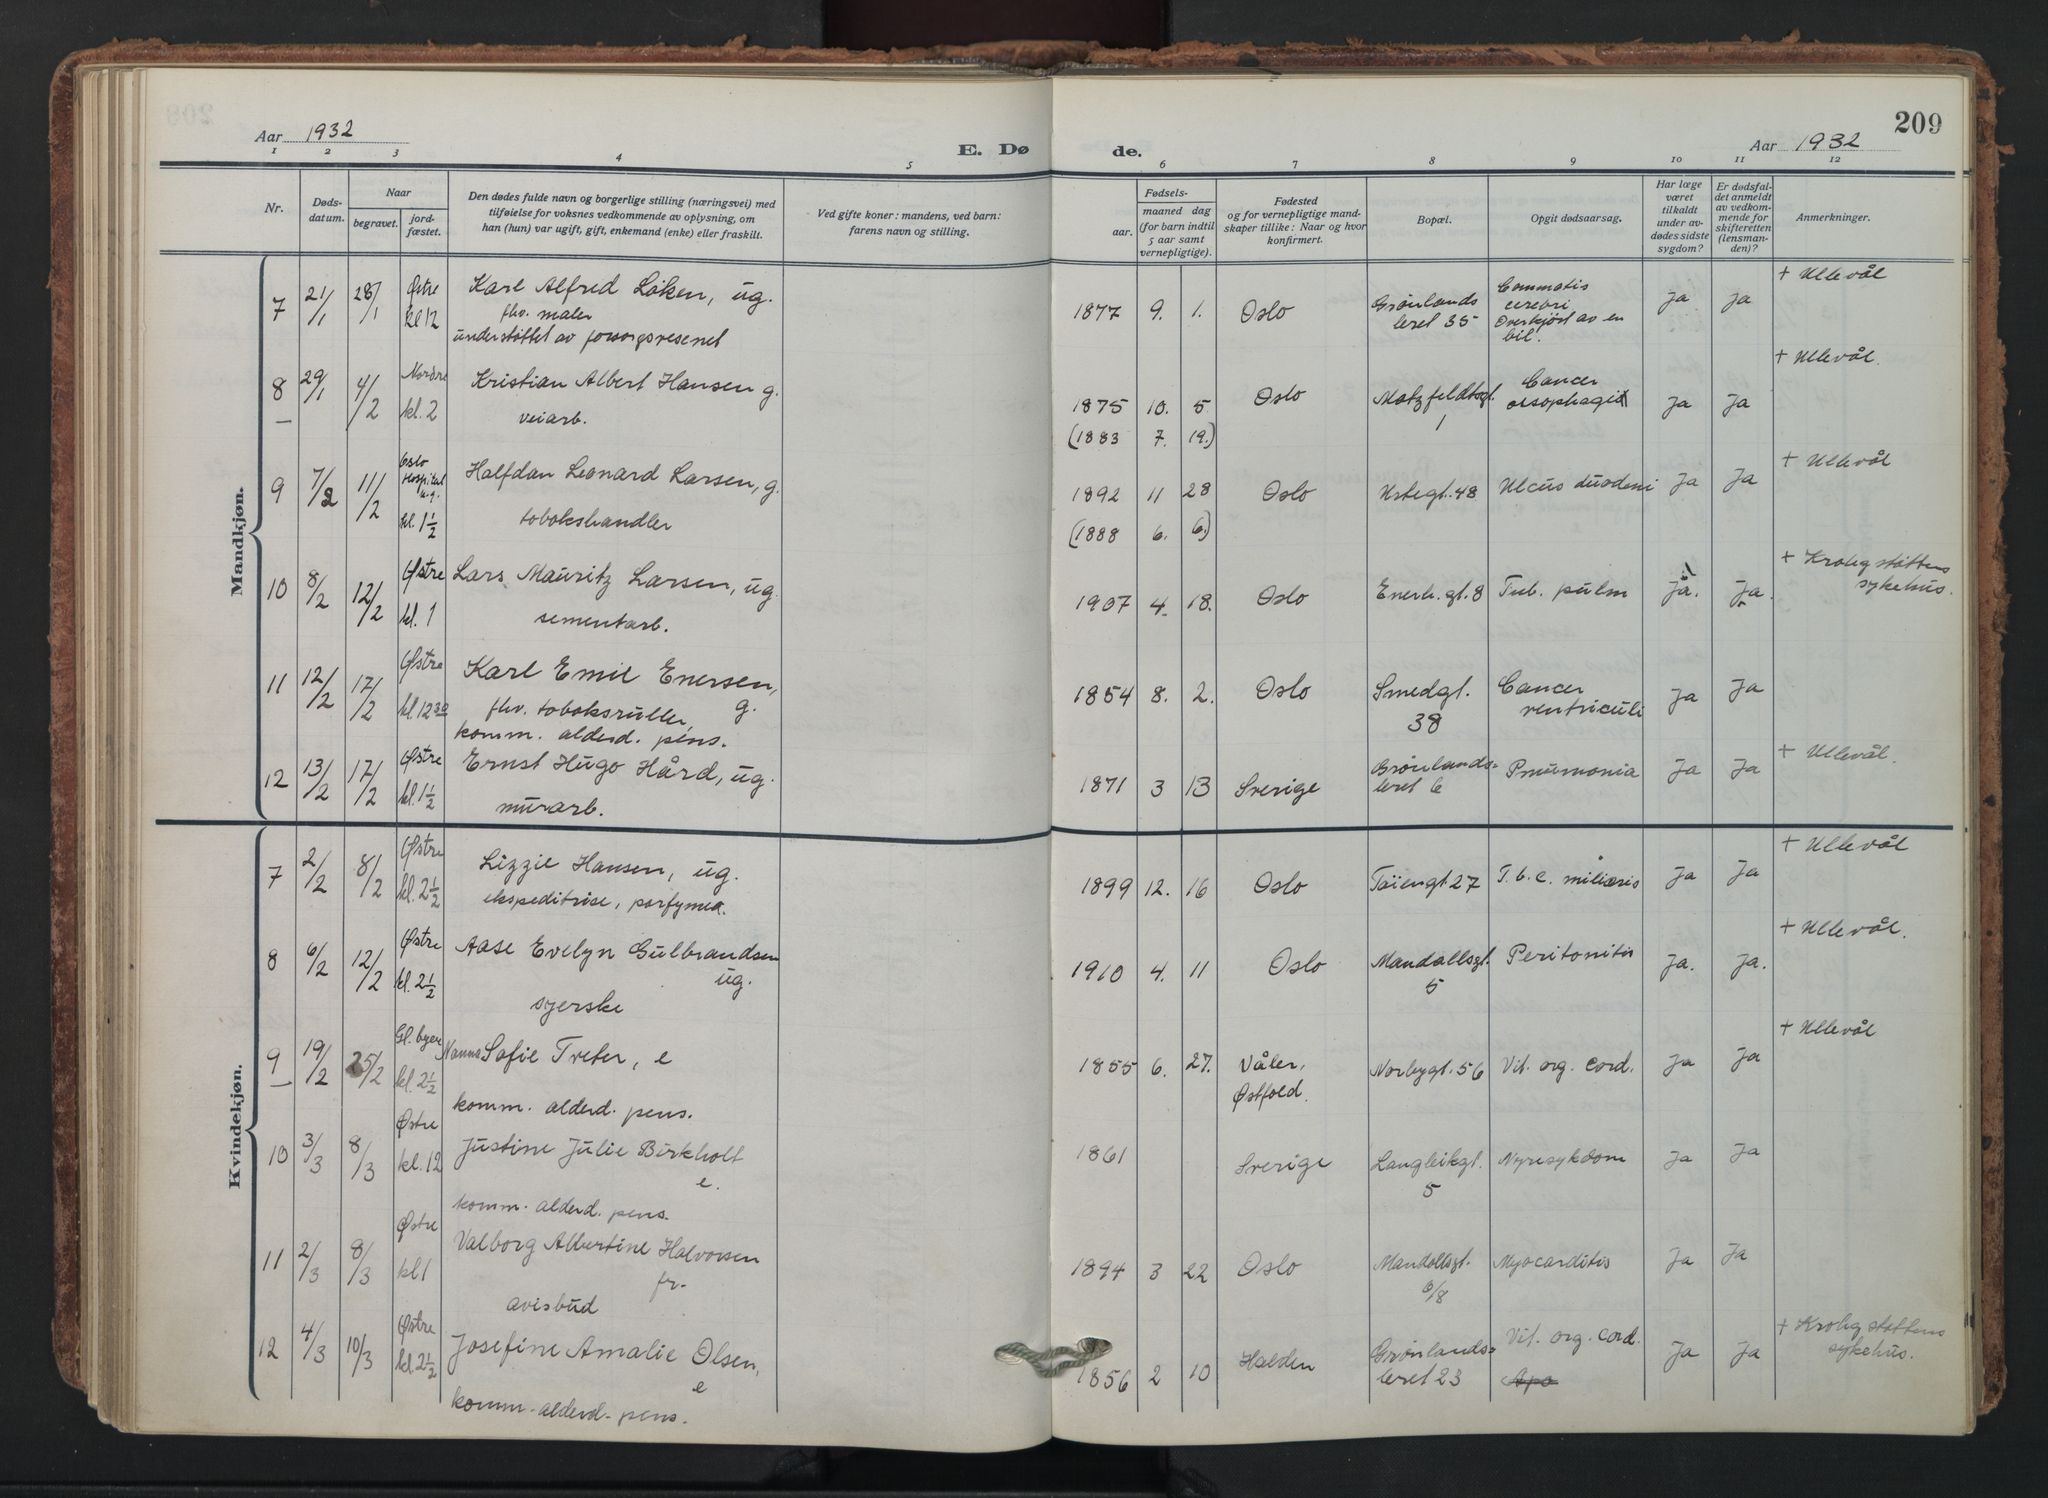 209
Aar 1932
E. Dø
de.
Aar 1932
1 2 3 4 5 6 7 8 9 10 11 12
Nr.
Døds-
datum.
Naar
begravet.
jord-
fæstet.
Den dødes fulde navn og borgerlige stilling (næringsvei) med
tilføielse for voksnes vedkommende av oplysning, om
han (hun) var ugift, gift, enkemand (enke) eller fraskilt.
Ved gifte koner: mandens, ved barn:
farens navn og stilling.
Fødsels-
aar.
maaned
dag
(for barn indtil
5 aar samt
vernepligtige).
Fødested
og for vernepligtige mand-
skaper tillike: Naar og hvor
konfirmert.
Bopæl.
Opgit dødsaarsag.
Har læge
været
tilkaldt
under av-
dødes sidste
sygdom?
Er dødsfal-
det anmeldt
av vedkom-
mende for
skifteretten
(lensman-
den)?
Anmerkninger.
Mandkjøn.
7 21/1 28/1 Østre kl 12
Karl Alfred Løken, ug.
fhv. maler
understøttet av forsorgsvesenet
1877 9. 1. Oslo
Grønlands
leret 35
Commotis
cerebri
Overkjørt av en
bil.
Ja Ja + Ullevål
8 29/1 4/2 Nordre kl. 2
Kristian Albert Hansen g.
veiarb.
1875 10. 5 Oslo
(1883 7. 19.)
Motzfeldtsgt.
1
Cancer
oesophagi
Ja Ja + Ullevål.
9 7/2 11/2 Oslo Hospital kl. 1 1/2
Halfdan Leonard Larsen, g.
tobakshandler
1892 11 28 Oslo
(1888 6. 6.)
Urtegt. 48 Ulcus duodeni Ja Ja + Ullevål
10 8/2 12/2 Østre kl. 1
Lars Mauritz Larsen, ug.
sementarb.
1907 4 18. Oslo Enerh. gt. 8 Tub. pulm Ja. Ja.
+ Krohgstøttens
sykehus.
11 12/2 17/2 Østre kl. 12 30
Karl Emil Enersen,
fhv. toboksruller, g.
komm. alderd. pens.
1854 8. 2. Oslo
Smedgt.
38
Cancer
ventriculi
Ja Ja
12 13/2 17/2 Østre kl. 1 1/2
Ernst Hugo Hård, ug.
murarb.
1871 3 13 Sverige
Grønlands-
leret 6
Pnumonia Ja Ja + Ullevål.
Kvindekjøn.
7 2/2 8/2 Østre kl. 2 1/2
Lizzie Hansen, ug.
ekspeditrise, parfymea.
1899 12. 16 Oslo Tøiengt 27 T. b. c. miliæris Ja Ja + Ullevål
8 6/2 12/2 Østre kl. 2 1/2
Aase Evelyn Gulbrandsen
ug.
syerske
1910 4. 11 Oslo
Mandallsgt.
5
Peritonitis Ja. Ja. + Ullevål.
9 19/2 25/2 Gl. byen kl. 2 1/2
Nanna Sofie Treter, e
komm. alderd. pens.
1855 6. 27.
Våler,
Østfold.
Norbygt. 56 Vit. org. cord. Ja Ja + Ullevål
10 3/3 8/3 Østre kl. 12
Justine Julie Birkholt
e.
komm. alderd. pens.
1861 Sverige
Langleikgt.
5
Nyresykdom Ja Ja
11 2/3 8/3 Østre kl 1
Valborg Albertine Halvorsen
fr.
avisbud
1894 3 22 Oslo
Mandallsgt.
6/8
Myocarditis Ja Ja
12 4/3 10/3 Østre kl. 2 1/2
Josefine Amalie Olsen,
e
komm. alderd. pens.
1856 2 10 Halden
Grønlands-
leret 23
Vit. org. cord.
Apo
Ja Ja
+ Krohgstøttens
sykehus.